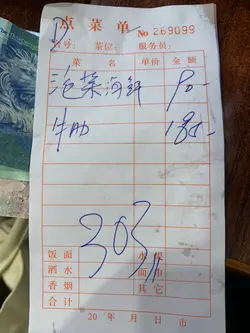 点菜单
No 269099
台号: 茶位: 服务员:
菜 名 单价 金额
泡菜海鲜 90-
牛肋 185-
303
饭 面 水 果
酒 水 面 巾
香 烟 其 它
合 计
20 年 月 日 市